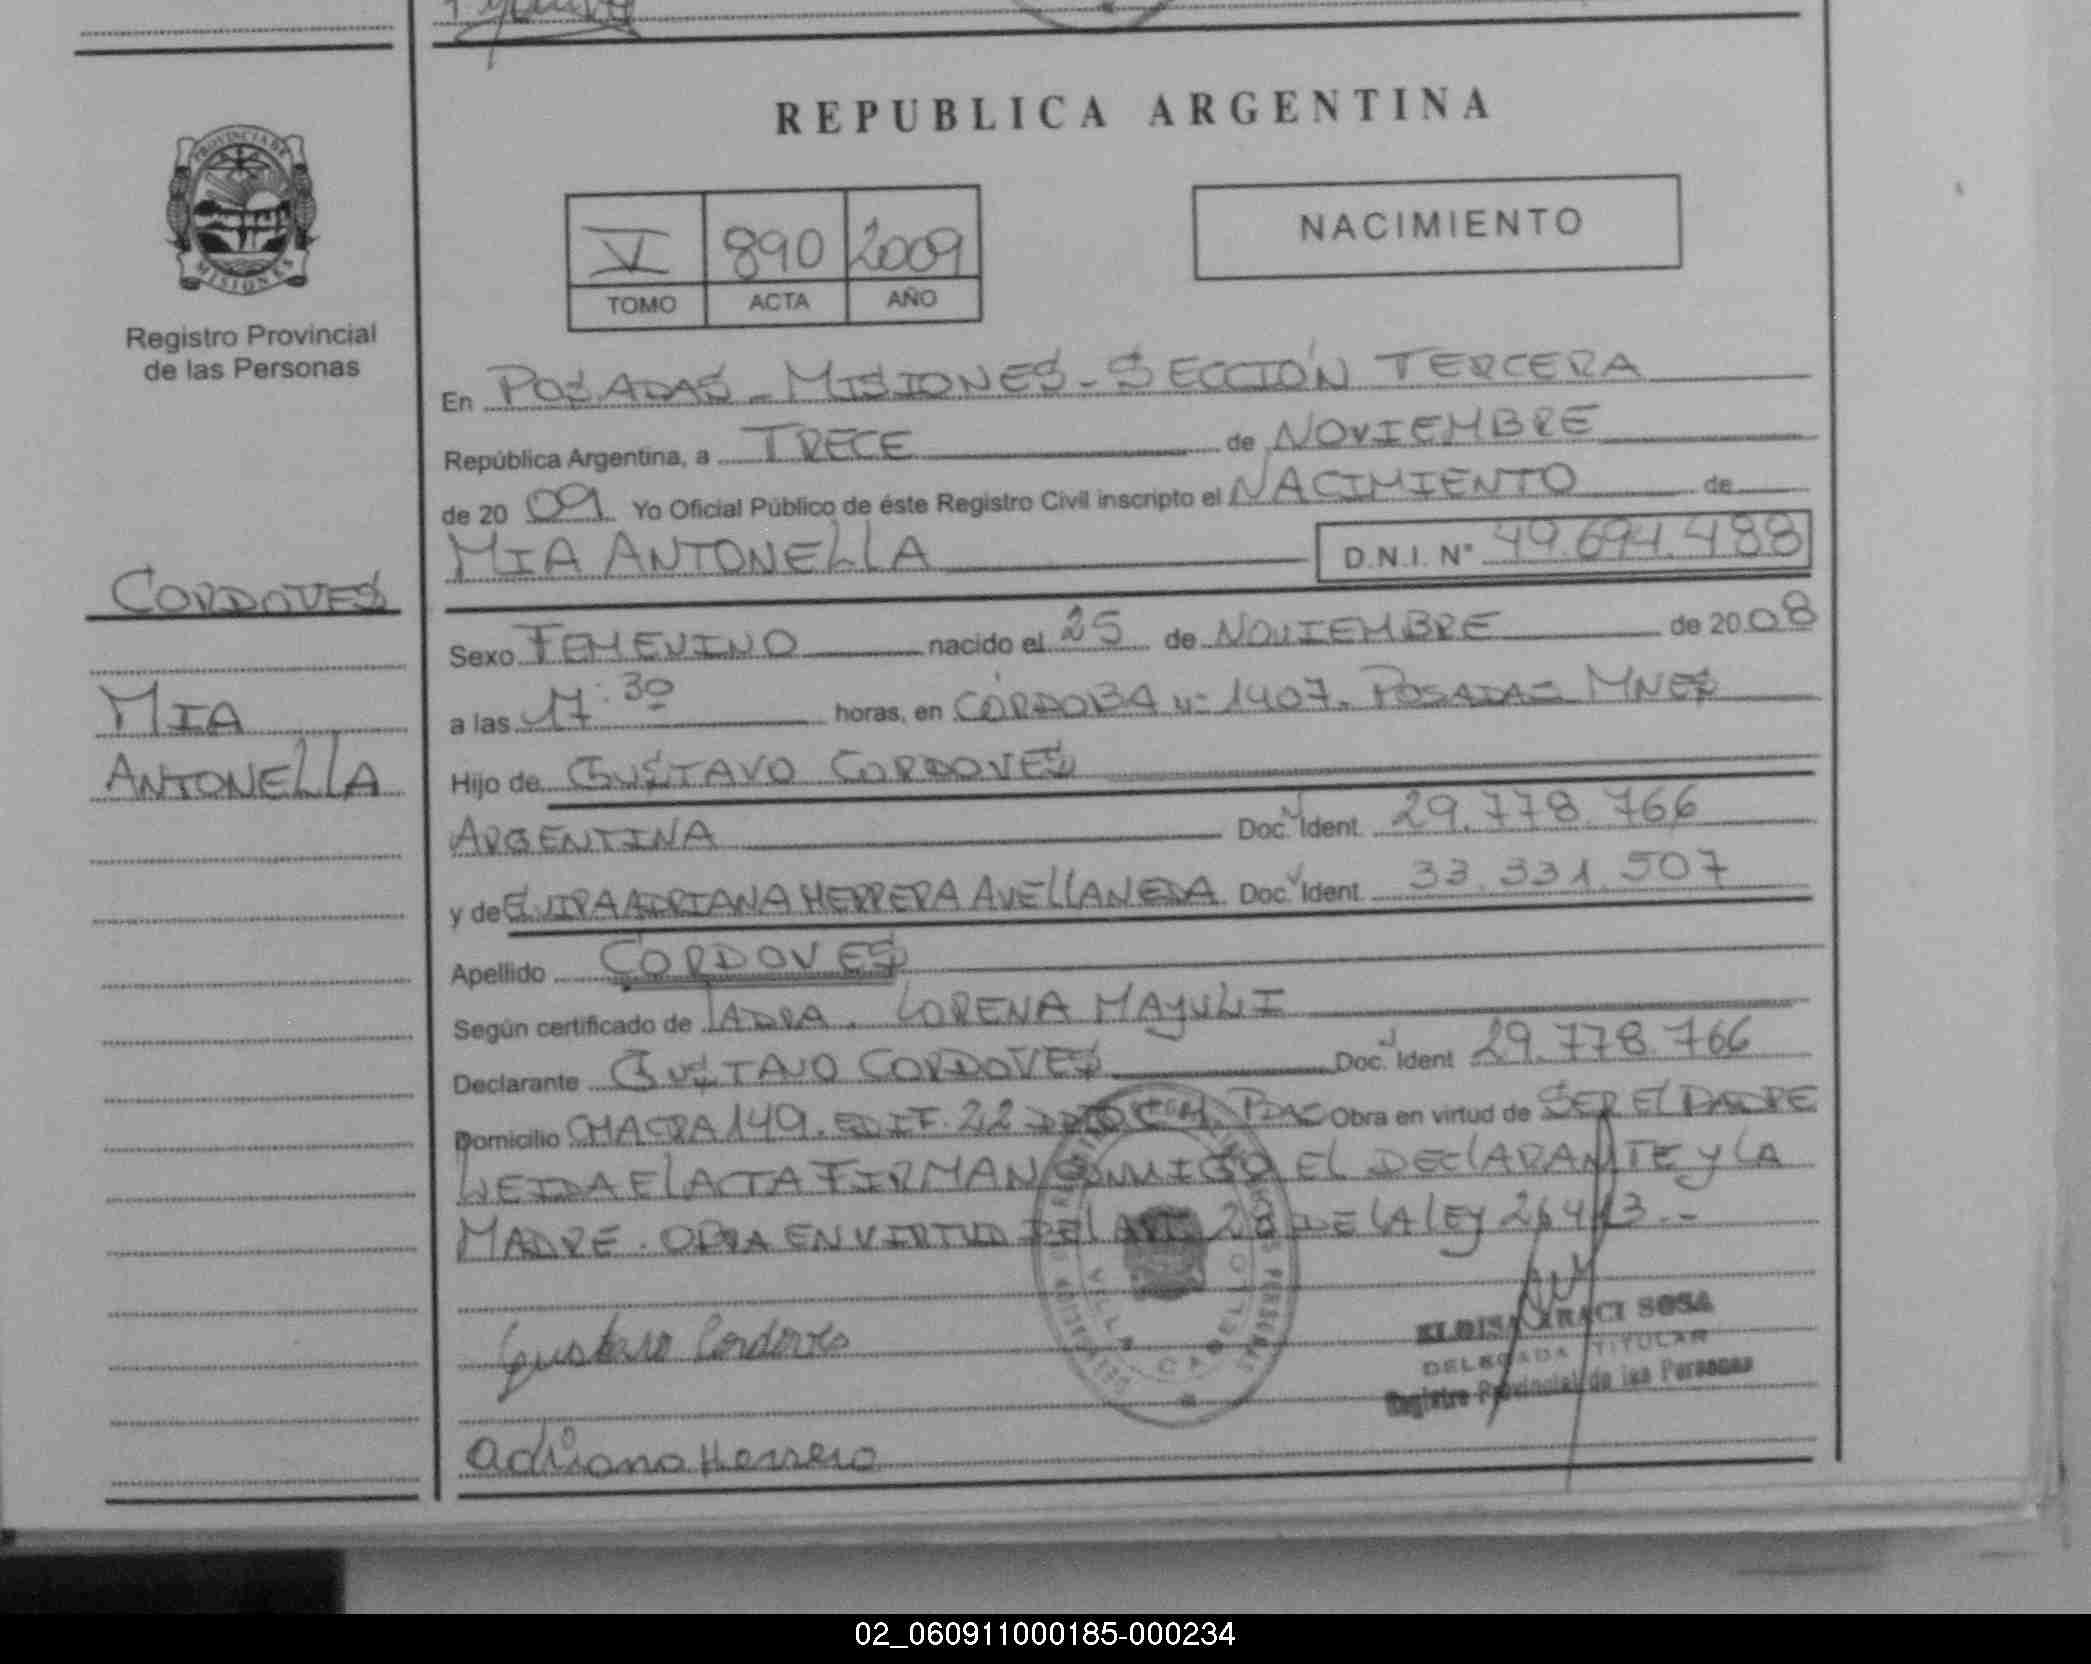 REPUBLICA ARGENTINA
PROVINCIA DE MISIONES
Registro Provincial
de las Personas
NACIMIENTO
V 890 2009
TOMO ACTA AÑO
En POSADAS - MISIONES - SECCIÓN TERCERA
República Argentina, a TRECE de NOVIEMBRE
de 20 09 Yo Oficial Público de éste Registro Civil inscripto el NACIMIENTO de
MIA ANTONELLA D.N.I. N° 49.694.488
CORDOVES
MIA
ANTONELLA
Sexo FEMENINO nacido el 25 de NOVIEMBRE de 20 08
a las 17:30 horas, en CÓRDOBA N° 1407. POSADAS MNES
Hijo de GUSTAVO CORDOVES
ARGENTINA Doc. Ident. 29.778.766
y de ELVIRA ADRIANA HERRERA AVELLANEDA Doc. Ident. 33.331.507
Apellido CORDOVES
Según certificado de LA DRA. LORENA MAYULI
Declarante GUSTAVO CORDOVES Doc. Ident 29.778.766
Domicilio CHACRA 149. EDIF. 22 DPTO PDAS Obra en virtud de SER EL PADRE
LEIDA EL ACTA FIRMAN CONMIGO EL DECLARANTE Y LA
MADRE. OBRA EN VIRTUD DEL ART 28 DE LA LEY 26413.-
Gustavo Cordoves
VILLA CABELLO
ELOISA ARACI SOSA
DELEGADA TITULAR
Registro Provincial de las Personas
Adriana Herrera
02_060911000185-000234